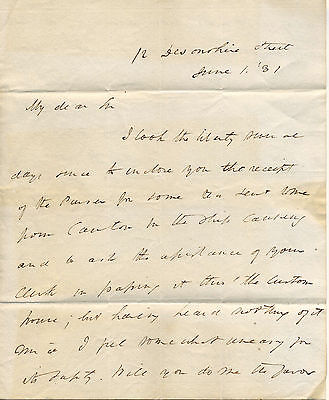 12 Devonshire Street
June 1. '31
My dear Sir
I took the liberty some
days since to inclose you the receipt
of the Purser for some tea sent home
from Canton in the Ship Canning
and to ask the assistance of your
Clerk in passing it thro' the Custom
house; but having heard nothing of it
since I feel somewhat uneasy for
its safety. Will you do me the favor